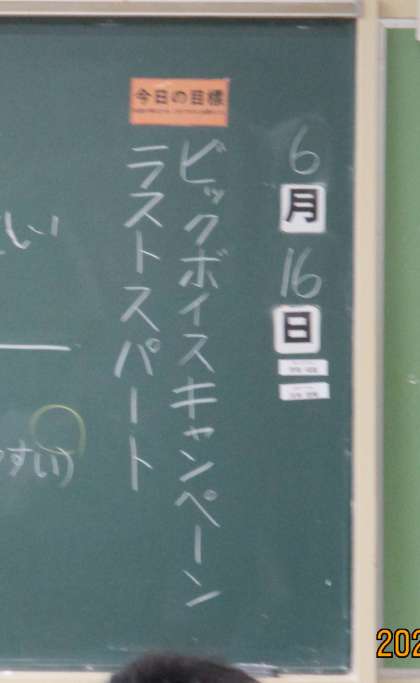 6月16日
今日の目標
ビックボイスキャンペーン
ラストスパート
すい)
202